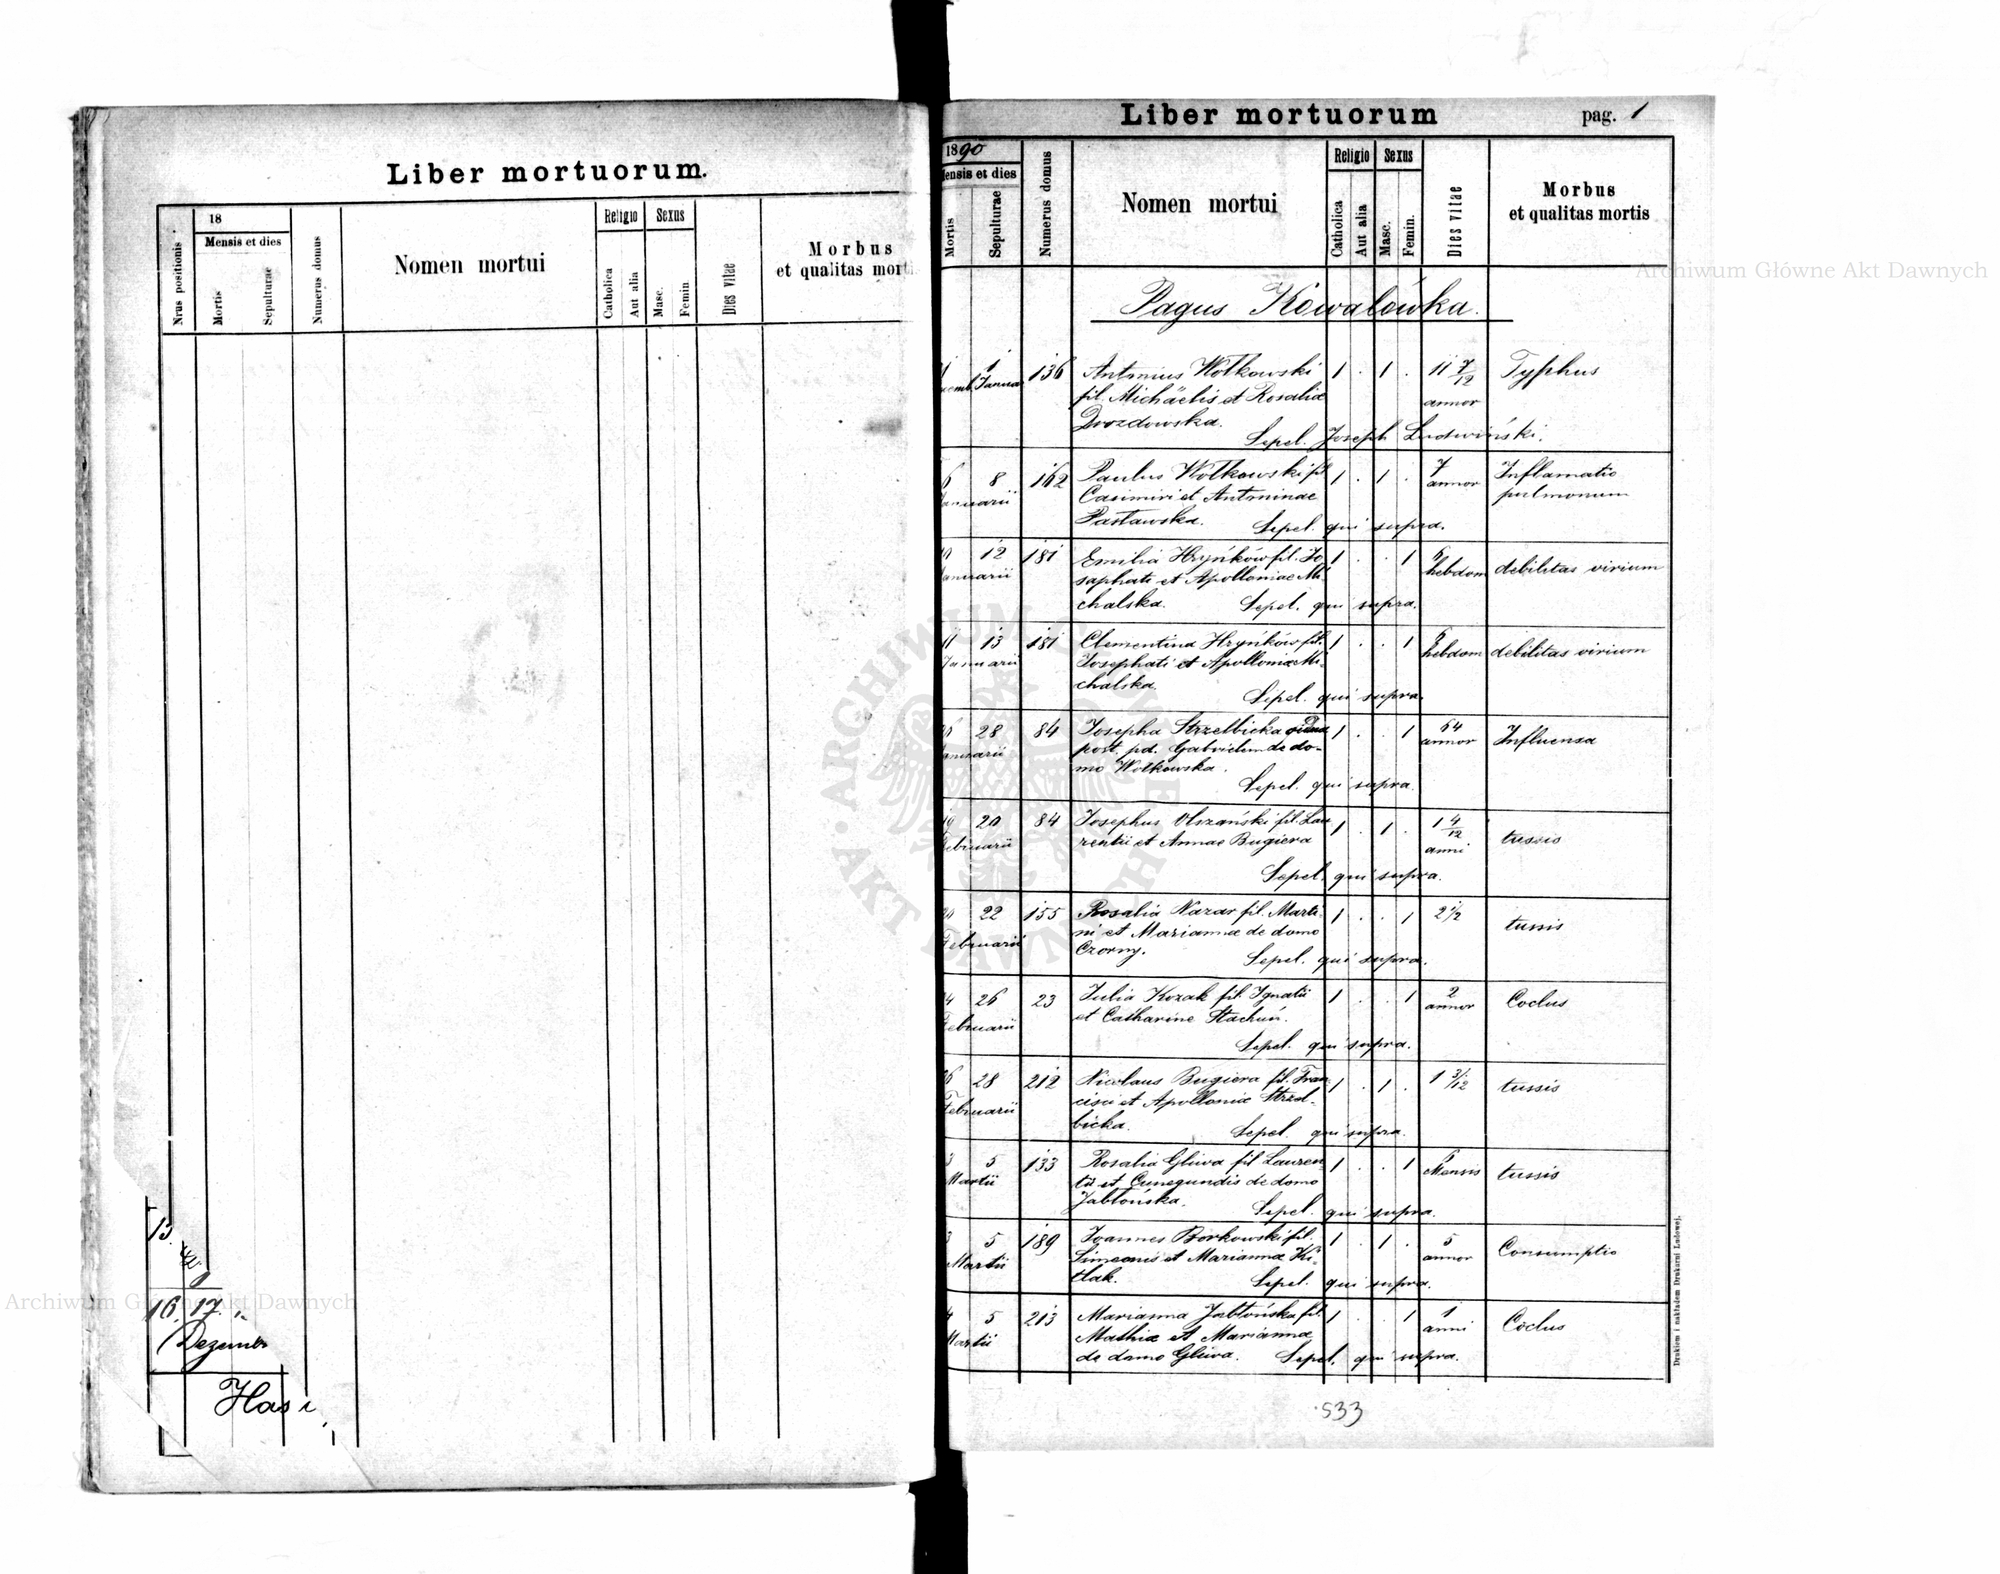 Liber mortuorum.
Nrus positionis
18
Mensis et dies
Mortis
Sepulturae
Numerus domus
Nomen mortui
Religio
Catholica
Aut alia
Sexus
Masc.
Femin.
Dies vitae
Morbus
et qualitas morti
16 17
Dezember
Liber mortuorum
pag. 1
1890
Mensis et dies
Mortis
Sepulturae
Numerus domus
Nomen mortui
Religio
Catholica
Aut alia
Sexus
Masc.
Femin.
Dies vitae
Morbus
et qualitas mortis
Pagus Kowalówka.
1 136 Antonius Wołkowski 1 . 1 . 11 7/12 Typhus
Januar fil. Michäelis et Rosaliæ annor
Drozdowska.
Sepel. Joseph Ludwiński.
6 8 162 Paulus Wołkowski fil 1 . 1 . 7 annor Inflamatio
Januarii Casimiri et Antoninae pulmonum
Pastawska. Sepel. qui supra.
12 181 Emilia Hryńków fil. Jo 1 . . 1 6 hebdom debilitas virium
Januarii saphati et Apolloniae Mi
chalska. Sepel. qui supra.
11 13 181 Clementina Hryńków fil. 1 . . 1 6 hebdom debilitas virium
Januarii Josephati et Apolloniæ Mi
chalska. Sepel. qui supra.
28 84 Josepha Strzelbicka 1 . . 1 64 annor Influensa
Januarii post. pd. Gabrielem de do-
mo Wołkowska.
Sepel. qui supra.
19 20 84 Josephus Olszański fil. Lau 1 . 1 . 1 4/12 anni tussis
Februarii rentii et Annae Bugiera
Sepel. qui supra.
20 22 155 Rosalia Nazar fil. Marti- 1 . . 1 2 1/2 tussis
Februarii ni et Mariannæ de domo
Czorny. Sepel. qui supra.
24 26 23 Julia Kozak fil. Ignatii 1 . . 1 2 annor Coclus
Februarii et Catharine Stachuń.
Sepel. qui supra.
26 28 212 Nicolaus Bugiera fil. Fran 1 . 1 . 1 3/12 tussis
Februarii cisci et Apolloniæ Strzel-
bicka. Sepel. qui supra.
3 5 133 Rosalia Gliwa fil Lauren 1 . . 1 Mensis tussis
Martii tii et Cunegundis de domo
Jabłońska. Sepel. qui supra.
3 5 189 Joannes Borkowski fil. 1 . 1 . 5 annor Consumptio
Martii Simeonis et Mariannæ Ki-
tlak. Sepel. qui supra.
4 5 213 Marianna Jabłońska fil. 1 . . 1 1 anni Coclus
Martii Mathiæ et Marianna
de domo Gliwa. Sepel. qui supra.
533
Drukiem i nakładem Drukarni Ludowej.
Archiwum Główne Akt Dawnych
Archiwum Główne Akt Dawnych